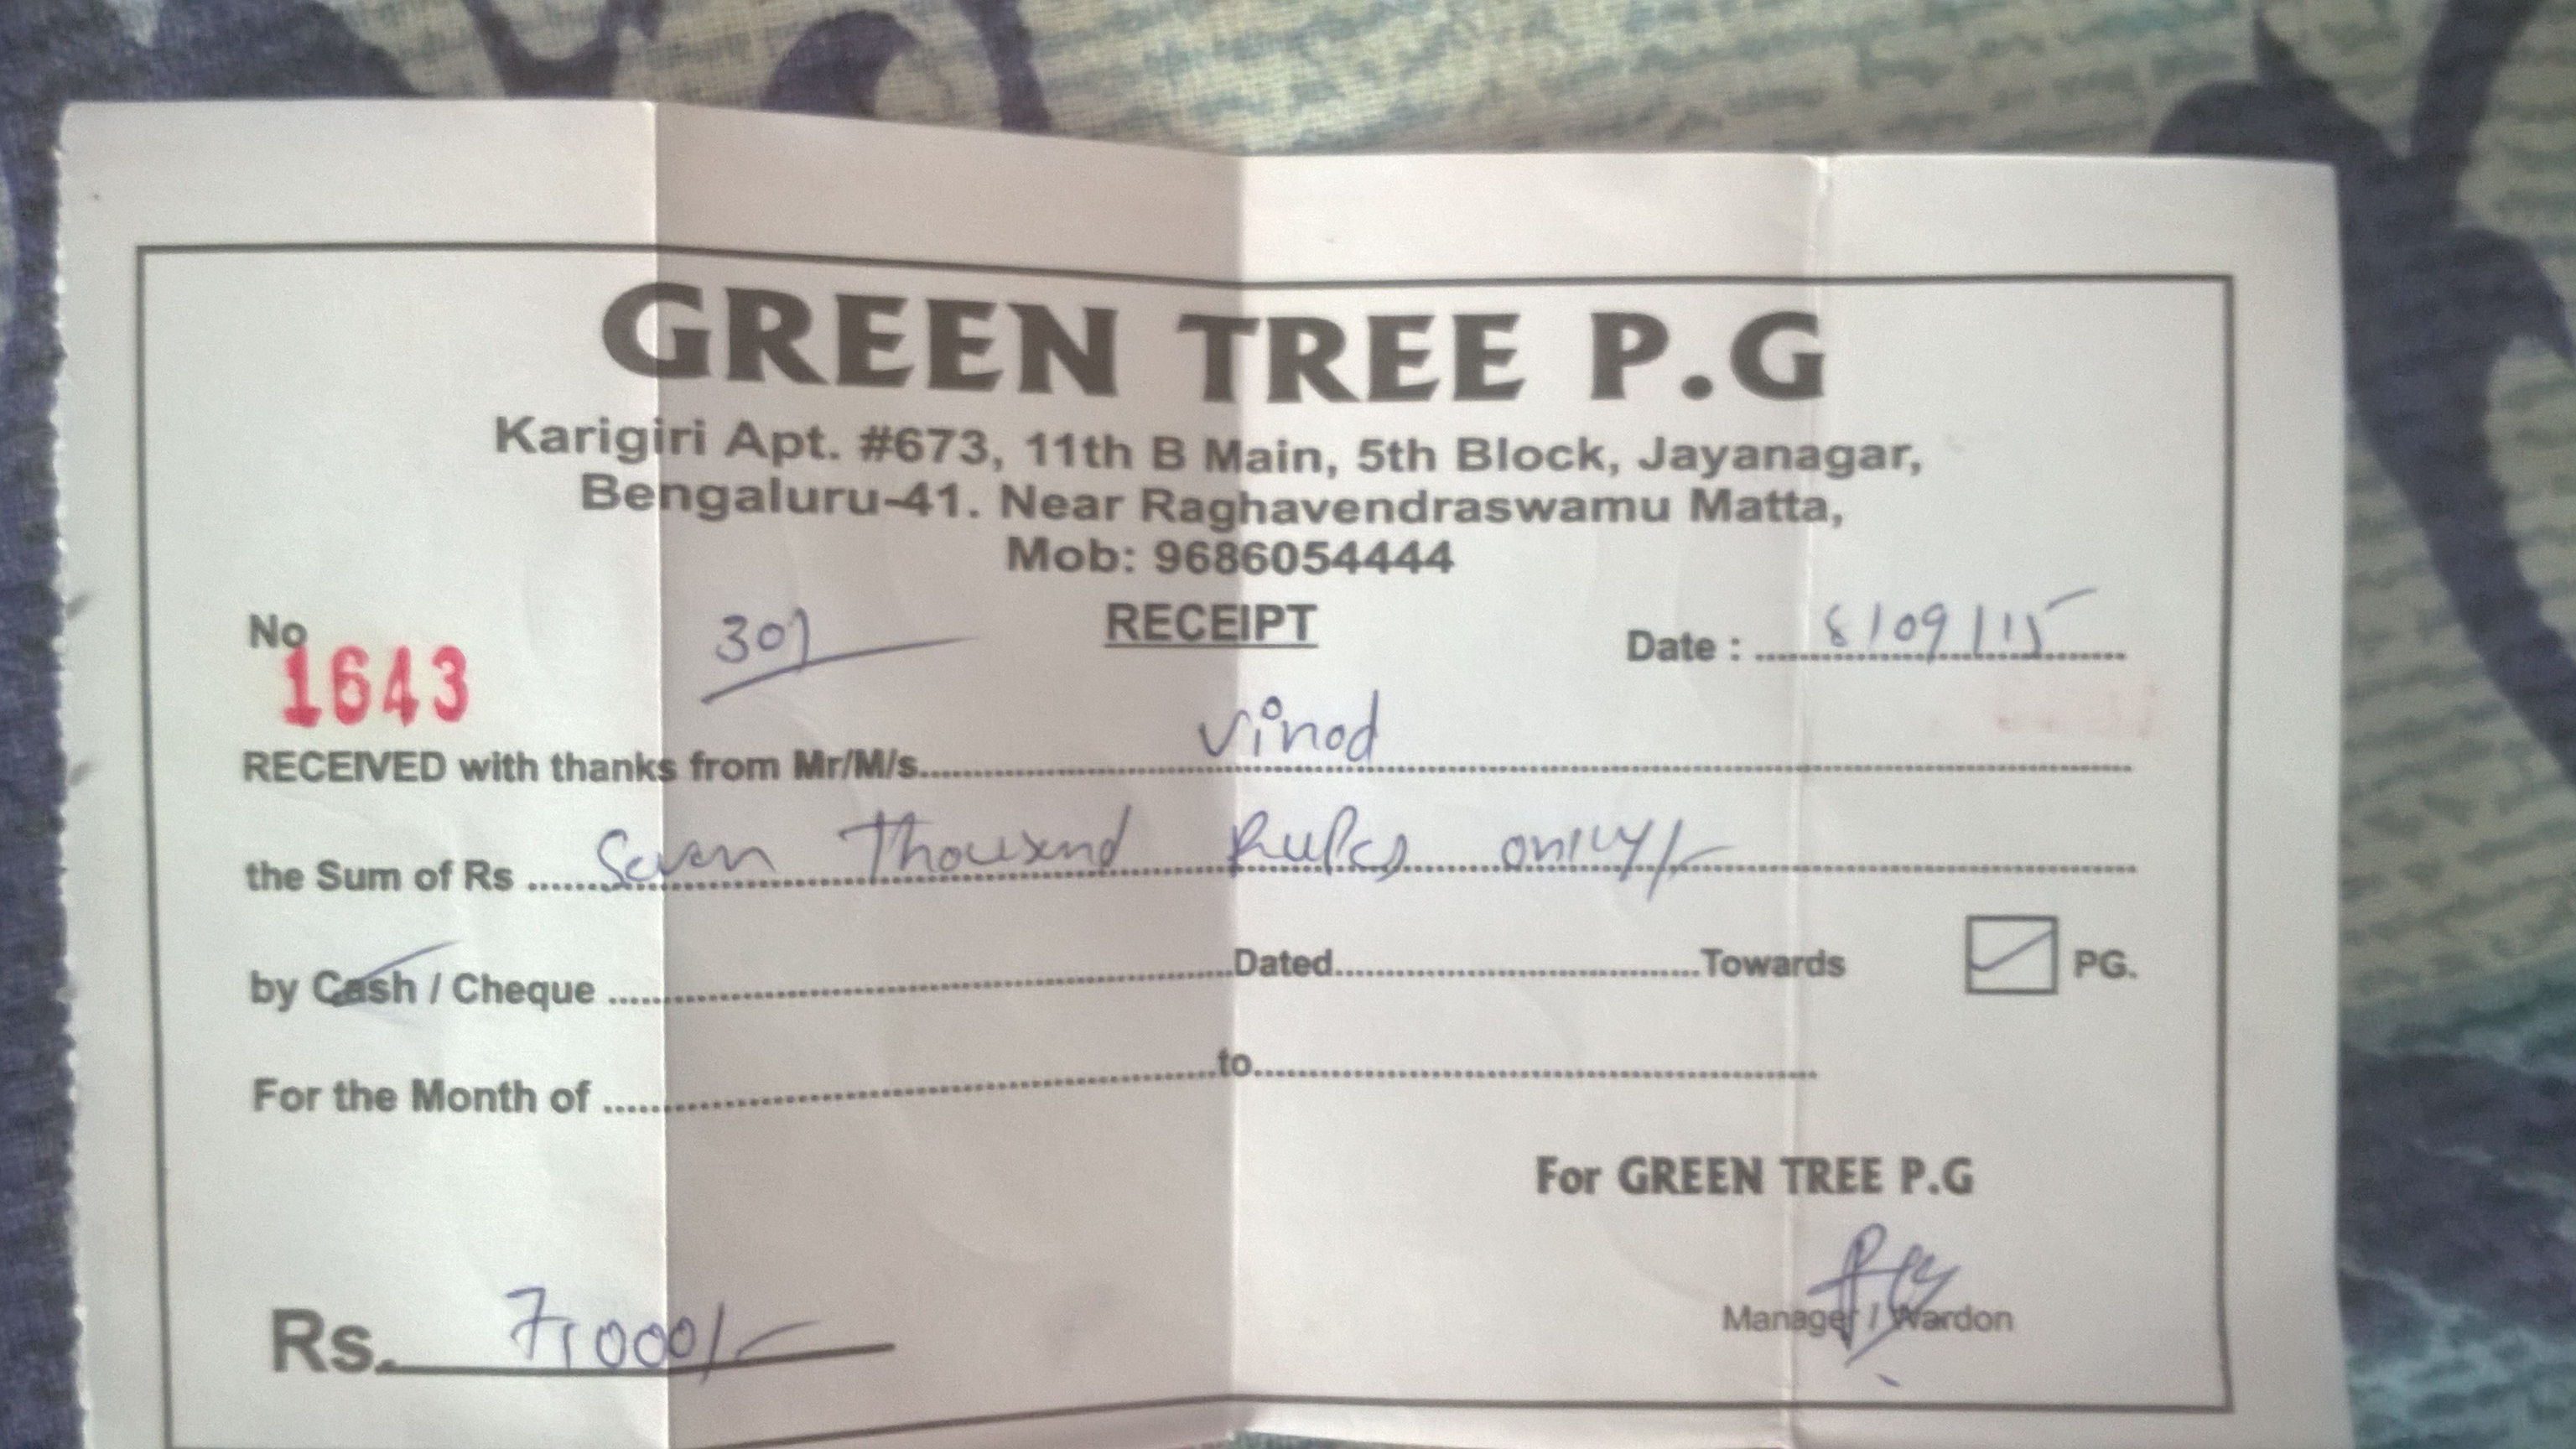 GREEN TREE P.G
Karigiri Apt. #673, 11th B Main, 5th Block, Jayanagar,
Bengaluru-41. Near Raghavendraswamu Matta,
Mob: 9686054444
No 1643 301 RECEIPT Date : 8/09/15
RECEIVED with thanks from Mr/M/s. Vinod
the Sum of Rs Seven Thousend Rupes only/-
by Cash / Cheque Dated Towards PG.
For the Month of to
For GREEN TREE P.G
Manager / Wardon
Rs. 7,000/-